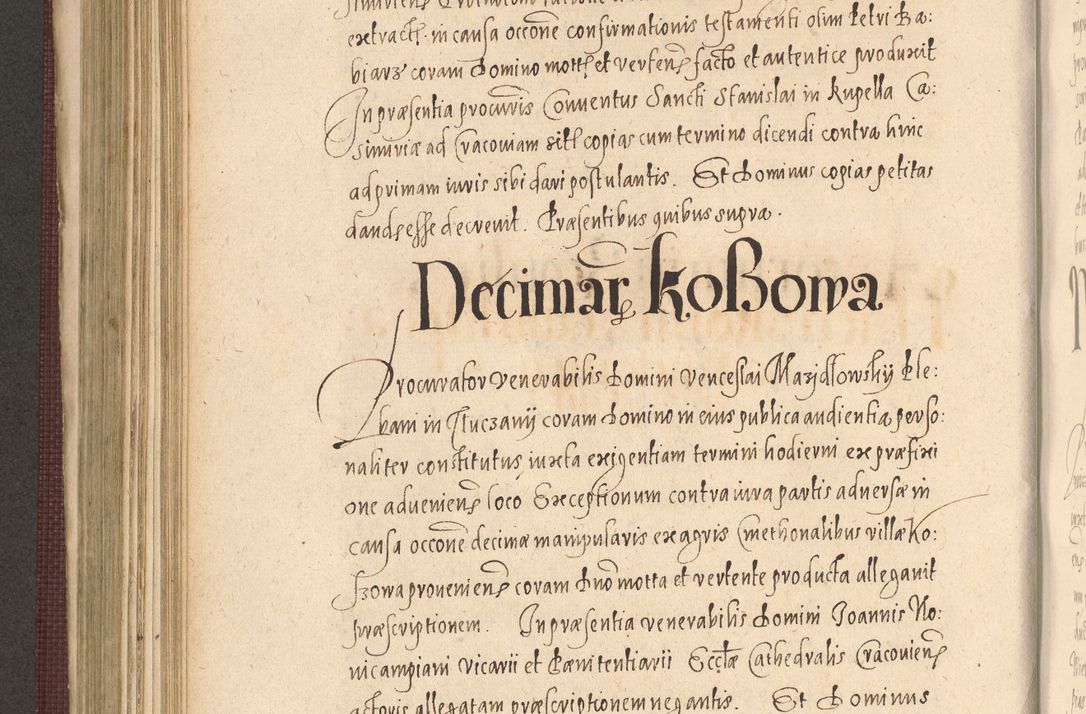 extract. in causa occone confirmationis testamenti olim Petri Ba:
biarz coram Domino mott. et verten. facto et autentice produxit
In præsentia procuris Conventus Sancti Stanislai in Rupella Ca:
simiriæ ad Cracoviam sitt copias cum termino dicendi contra hinc
ad primam iuris sibi dari postulantis. Et Dominus copias petitas
dandęesse decrevit. Præsentibus quibus supra.
Decimar. Koßowa
Procurator venerabilis Domini Venceslai Mazidłowskij Ple:
bani in Tłuczanij coram Domino in eius publica audientia perso:
naliter constitutus iuxta exigentiam termini hodierni ex præfixi
one advenien. loco Exceptionum contra iura partis adversæ in
causa occone decimæ manipularis ex agris Cmethonalibus villæ Ko:
szowa provenien. coram Dno motta et vertente producta allegavit
præscriptionem. In præsentia venerabilis Domini Joannis No:
vicampiani Vicarii et Pænitentiarii Eccłæ Cathedralis Cracovien.
actoris allegatam præscriptionem negantis. Et Dominus